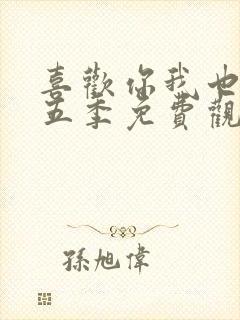 喜歡你我也
五季免費觀
孫旭偉